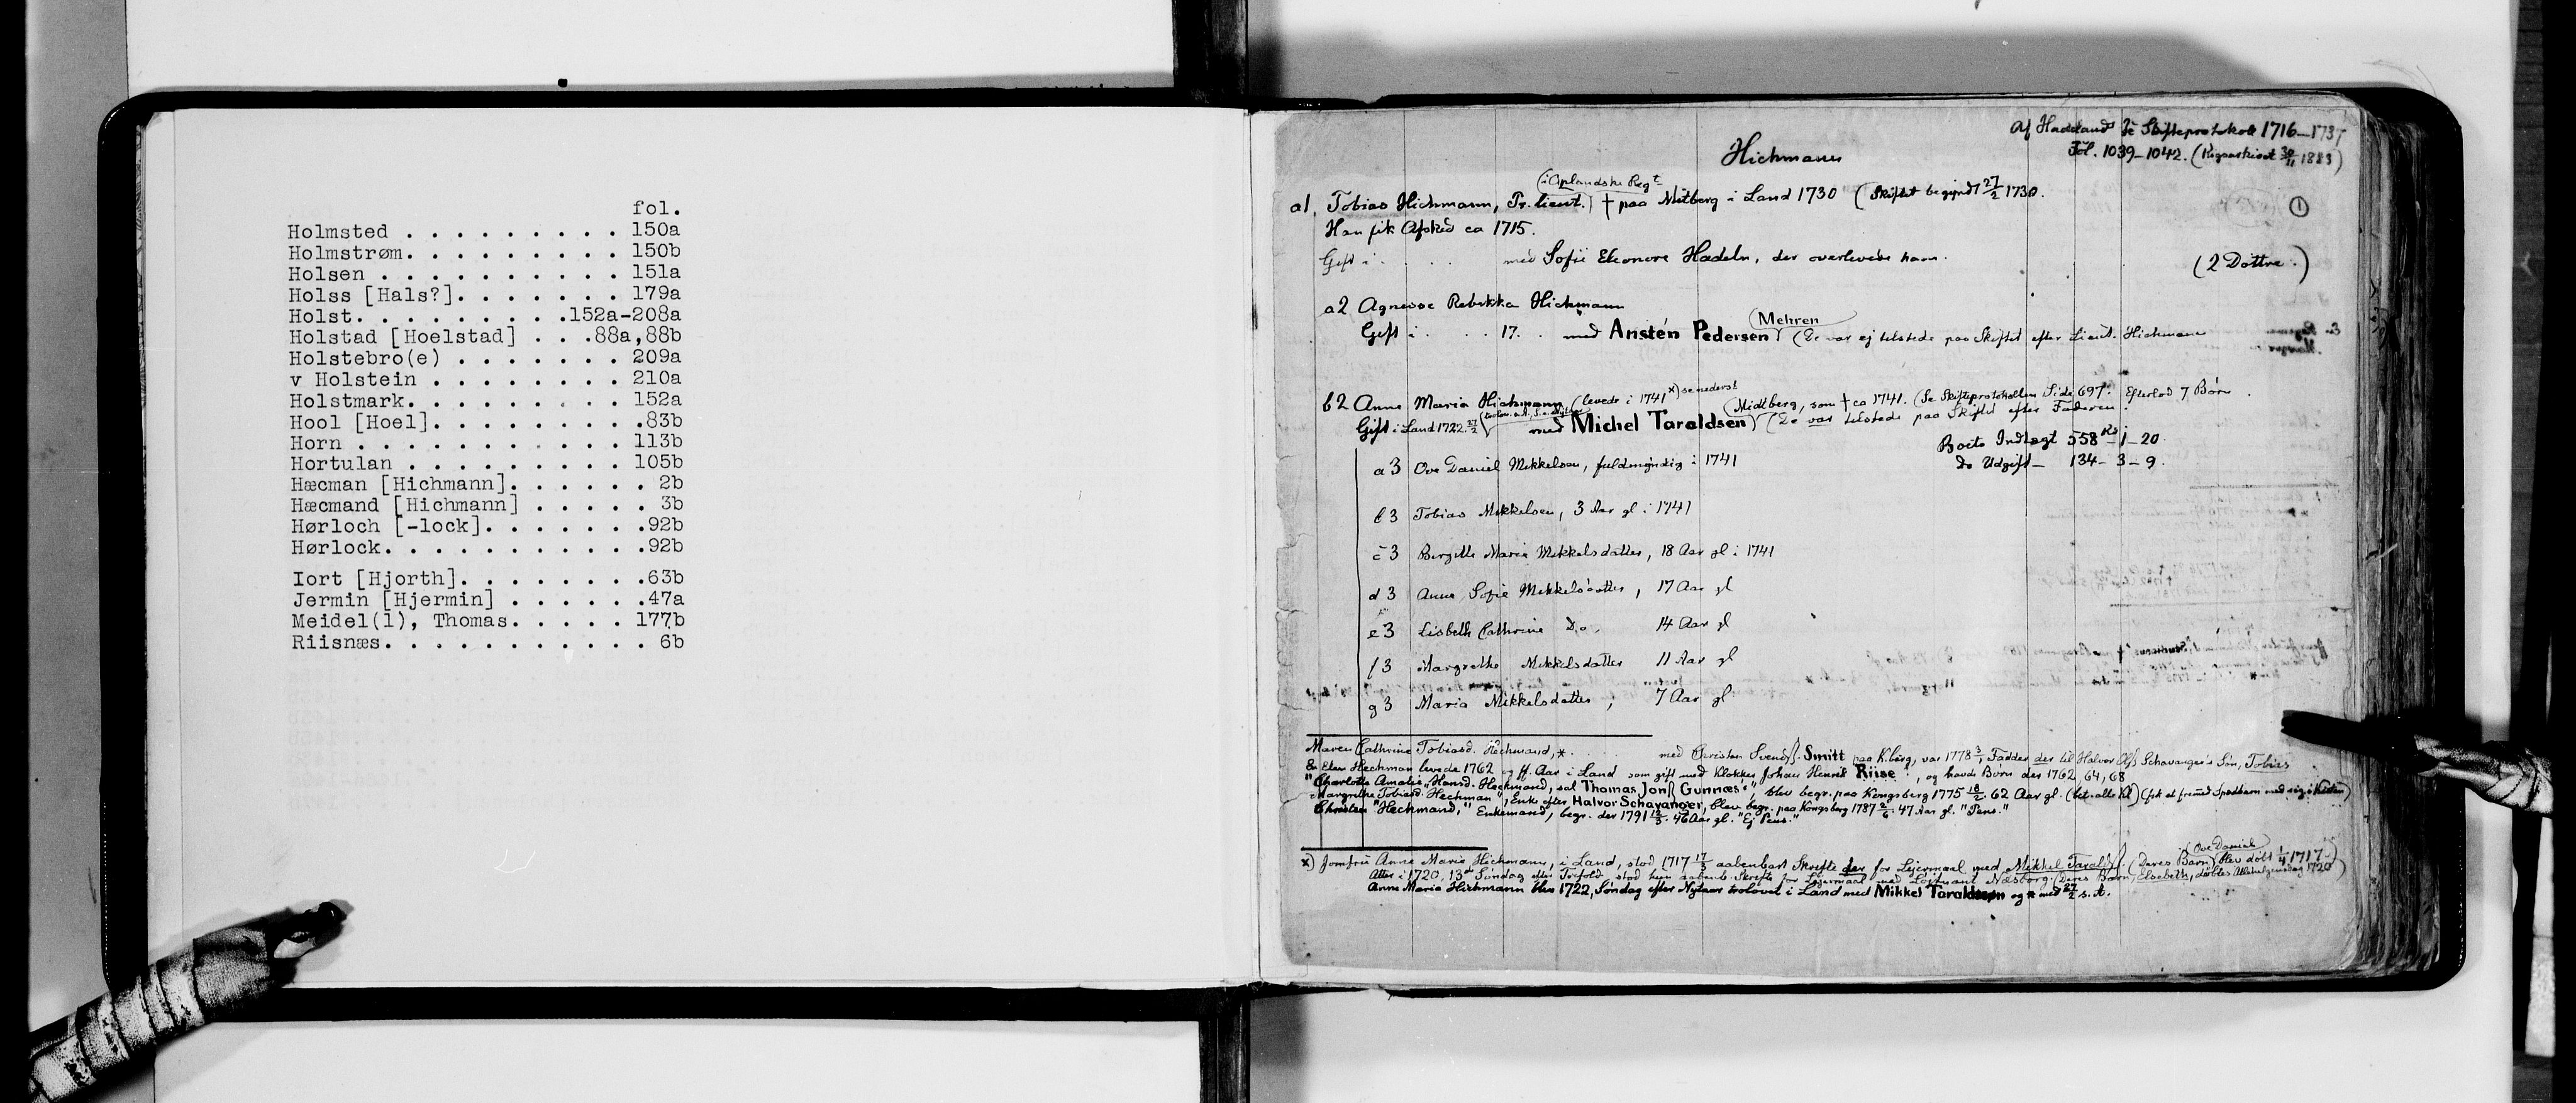 fol.
Holmsted . . . . . . . . . 150a
Holmstrøm. . . . . . . . . 150b
Holsen . . . . . . . . . . 151a
Holss [Hals?]. . . . . . . 179a
Holst. . . . . . . . . .152a-208a
Holstad [Hoelstad] . . .88a,88b
Holstebro(e) . . . . . . . 209a
v Holstein . . . . . . . . 210a
Holstmark. . . . . . . . . 152a
Hool [Hoel]. . . . . . . . .83b
Horn . . . . . . . . . . . 113b
Hortulan . . . . . . . . . 105b
Hæcman [Hichmann]. . . . . . 2b
Hæcmand [Hichmann] . . . . . 3b
Hørloch [-lock]. . . . . . .92b
Hørlock. . . . . . . . . . .92b
Iort [Hjorth]. . . . . . . .63b
Jermin [Hjermin] . . . . . .47a
Meidel(l), Thomas. . . . . 177b
Riisnæs. . . . . . . . . . . 6b
Af Hadelands Skifteprotokol 1716-1737
Fol. 1039-1042. (Rigsarkivet 30/11 1883)
Hichmann
(i Oplandske Regt
a1, Tobias Hichmann, Pr. lieut.) † paa Mitberg i Land 1730 (Skiftet begyndt 27/2 1730.
①
Han fik Afsked ca 1715.
Gift i . . . . med Sofie Eleonore Hadeln, der overlevede ham.
(2 Døttre.)
a2 Agnesse Rebekka Hichmann
Gift i . . . 17. . med Anstén Pedersen Mehren (De var ej tilstede paa Skiftet efter Lieut. Hichmann
b2 Anne Maria Hichmann (levede i 1741 x) se nederst
(Midtberg, som † ca 1741. (Se Skifteprotokollen Side 697. Efterlod 7 Børn.
Gift i Land 1722 27/2 med Michel Taraldsen) (De var tilstede paa Skiftet efter Faderen.
Boets Indtægt 558 Rd-1-20.
Do Udgift- 134-3-9.
a3 Ove Daniel Mikkelsen, fuldmyndig i 1741
b3 Tobias Mikkelsen, 3 Aar gl i 1741
c3 Birgitte Marie Mikkelsdatter, 18 Aar gl i 1741
d3 Anne Sofie Mikkelsdatter, 17 Aar gl
e3 Lisbeth Cathrine Do, 14 Aar gl
f3 Margrethe Mikkelsdatter 11 Aar gl
g3 Maria Mikkelsdatter, 7 Aar gl
Maren Cathrine Tobiasd. Hechmand, * . . . med Christen Svends. Smitt paa K.berg, var 1778 3/1 Fadder der til Halvor Olss Schavanger's Søn, Tobies
En Elen Hechman levede 1762 og ff. Aar i Land som gift med Klokker Johan Henrik Riise, og havde Børn der 1762, 64, 68
"Charlotte Amalie Hansd. Heckmand, sal Thomas Jons Gunnæs'", blev begr. paa Kongsberg 1775 18/2. 62 Aar gl. (bet. alle Kl) (fik et fremed Spædbarn med sig i Kisten)
Margrethe Tobiasd. Hechman", Enke efter Halvor Schavanger, blev begr. paa Kongsberg 1787 2/6. 47 Aar gl. "Pens."
Christen "Hechmand," Enkemand, begr. der 1791 12/3. 46 Aar gl. "Ej Pens."
(Ove Daniel)
x) Jomfru Anne Marie Hichmann, i Land, stod 1717 17/5 aabenbart Skrifte der for Lejermaal med Mikkel Taralds. (Deres Barn blev døbt 1/4 1717)
Atter i 1720, 13de Søndag efter Trefold. stod hun aabenb. Skrifte for Lejermaal med Løitnant Næsborg. (Deres Barn, Elsebeth, døbtes 1720
Anne Maria Hichmann blev 1722, Søndag efter Nytaar trolovet i Land med Mikkel Taraldsen og * med 27/2 s. A.